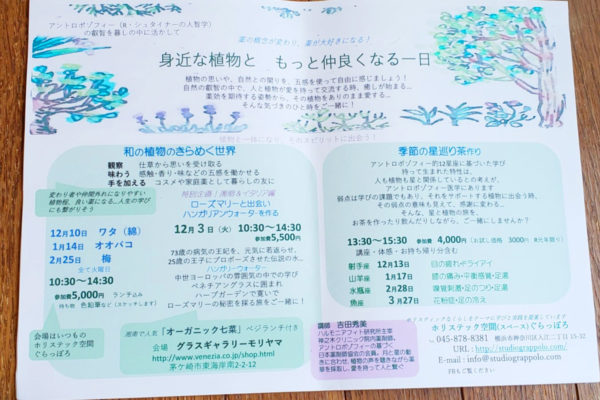 アントロポゾフィー（R・シュタイナーの人智学）
の叡智を暮しの中に活かして
薬の概念が変わり、薬が大好きになる！
身近な植物と　もっと仲良くなる一日
植物の思いや、自然との関りを、五感を使って自由に感じましょう！
自然の叡智の中で、人と植物が愛を持って交流する時、癒しが始まる…
薬効を期待する姿勢から、その植物をありのまま愛する…
そんな気づきのひと時をご一緒に！
植物と一体になり、そのスピリットに出会う！
和の植物のきらめく世界
観察　仕草から思いを受け取る
味わう　感触・香り・味などの五感を働かせる
手を加える　コスメや家庭薬として暮らしの友に
変わり者や仲間外れになりやすい
植物程、良い薬になる…人生の学び
にも繋がりそう
12月10日　ワタ（綿）
1月14日　オオバコ
2月25日　梅
全て火曜日
10:30〜14:30
参加費5,000円　ランチ込み
持ち物　色鉛筆など（スケッチします）
会場はいつもの
ホリステック空間
ぐらっぽろ
特別企画！湘南&イタリア編
ローズマリーと出会い
ハンガリアンウォーターを作る
12月3日（火）10:30〜14:30
参加費5,500円
73歳の病気の王妃を、元気に若返らせ、
25歳の王子にプロポーズさせた伝説の水…
ハンガリーウォーター
中世ヨーロッパの雰囲気の中での学び
ベネチアングラスに囲まれ
ハーブガーデンで寛いで
ローズマリーの秘密を探る旅をご一緒に！
湘南で人気「オーガニック七菜」ベジランチ付き
会場　グラスギャラリーモリヤマ
http://www.venezia.co.jp/shop.html
茅ケ崎市東海岸南2-2-12
季節の星巡り茶作り
アントロポゾフィー的12星座に基づいた学び
持って生まれた特性は、
人も植物も星と関係しているとの考えが、
アントロポゾフィー医学にあります
弱点は学びの課題でもあり、それをサポートする植物から、
その弱点の意味も見えて、感謝に変わる…
そんな、星と植物の旅を、
お茶を作ったり飲んだりしながら、ご一緒にしませんか？
13:30〜15:30　参加費　4,000円（お試し価格　3000円
講座・体感・お持ち帰り分含む
射手座　12月13日　目の疲れやライアテ
山羊座　1月17日　膝の痛み・平衡感覚・足湯
水瓶座　2月28日　嗅覚刺激・足のつり・足湯
魚座　3月27日　花粉症・足の冷え
講師　吉田秀美
ハルモニアフィト研究所主宰
神之木クリニック院内薬剤師、
アントロポゾフィーの基づく
日本薬剤師協会の会員。月と星の動
きに合わせ、植物の声を聴きながら薬
草を採取し、愛を持って人と繋ぐ
ホリステック空間（スペース）ぐらっぽろ
045-878-8381　横浜市神奈川区入江二丁目15-32
URL : http://studiograppolo.com/
E-mail : info@studiograppolo.com
FBもご覧ください